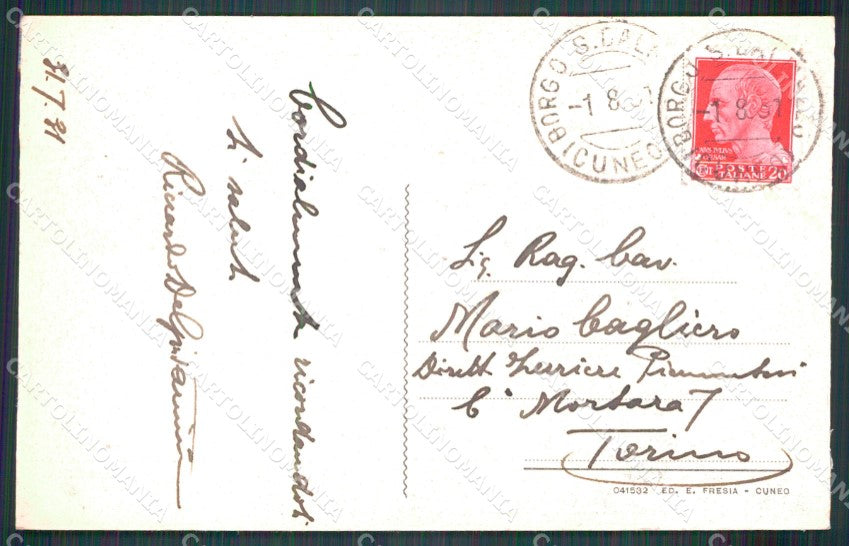 31.7.31
Cordialmente ricordandoti
ti saluto
Riccardo
BORGO S. DAL
(CUNEO)
-1 8
BORGO S. DALMAZZO
-1 8
POSTE
ITALIANE 20
Sig. Rag. Cav.
Mario Cagliero
Dirett
C° Mortara 7
Torino
041532 ED. E. FRESIA - CUNEO
CARTOLINOMANIA